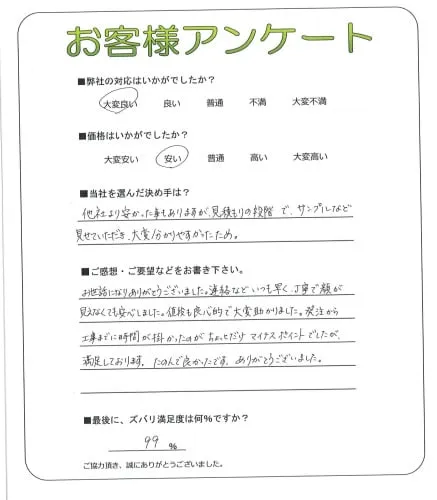 お客様アンケート
■弊社の対応はいかがでしたか？
大変良い 良い 普通 不満 大変不満
■価格はいかがでしたか？
大変安い 安い 普通 高い 大変高い
■当社を選んだ決め手は？
他社より安かった事もありますが、見積もりの段階で、サンプルなど
見せていただき、大変分かりやすかったため。
■ご感想・ご要望などをお書き下さい。
お世話になりありがとうございました。連絡などいつも早く、丁寧で顔が
見えなくても安心しました。値段も良心的で大変助かりました。発注から
工事までに時間が掛かったのがちょっとだけマイナスポイントでしたが、
満足しております。たのんで良かったです。ありがとうございました。
■最後に、ズバリ満足度は何%ですか？
99 %
ご協力頂き、誠にありがとうございました。